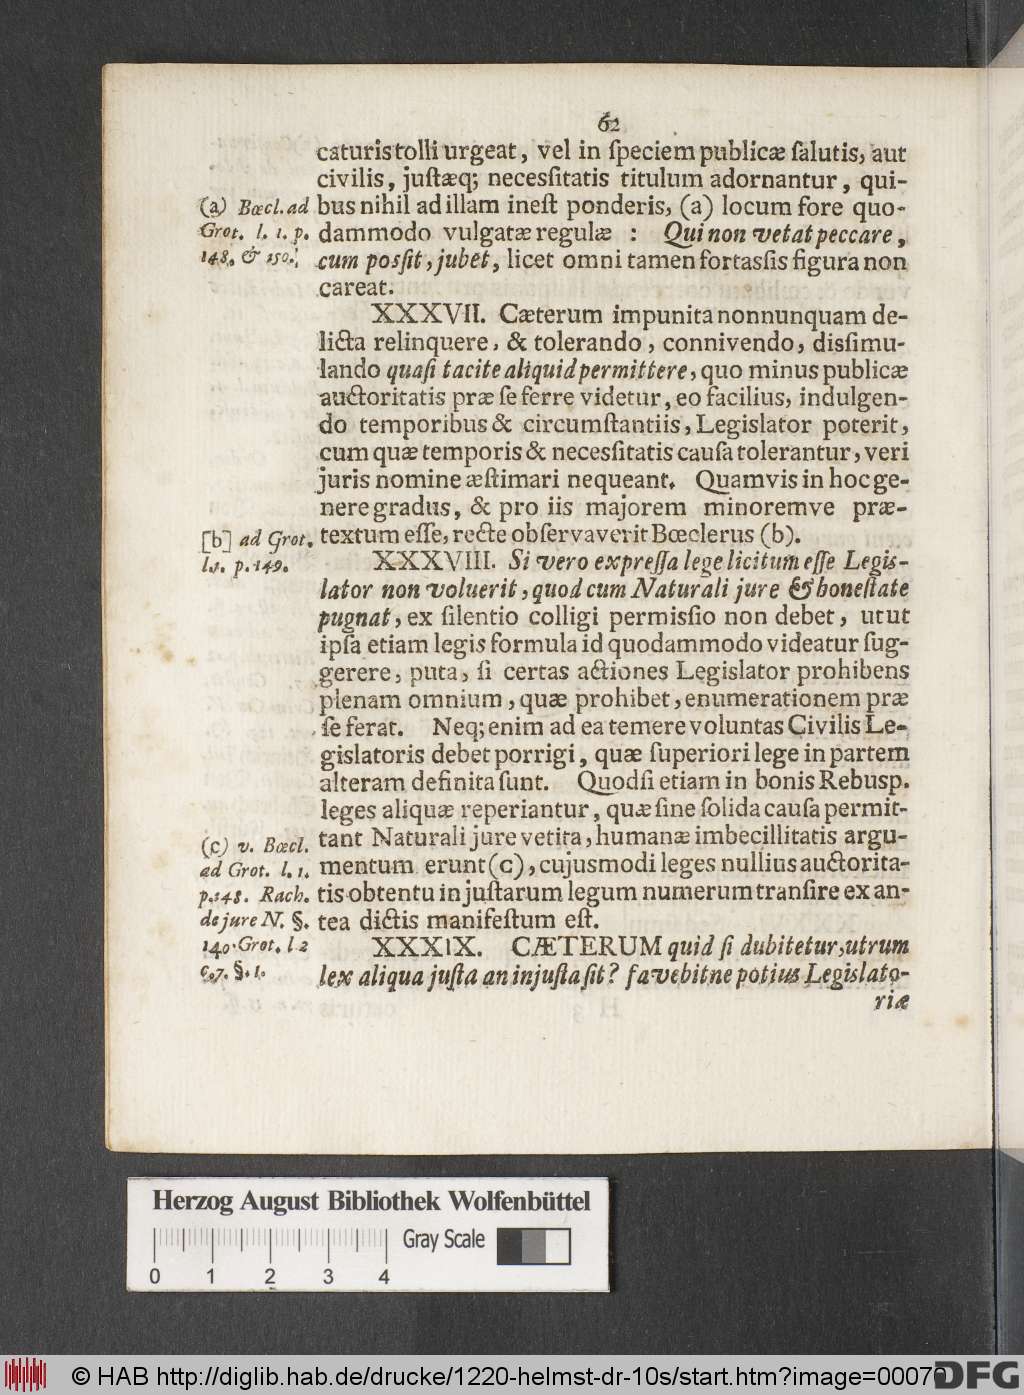 62
caturis tolli urgeat, vel in ſpeciem publicæ ſalutis, aut
civilis, juſtæq; necesſitatis titulum adornantur, qui-
(a) Bœcl. ad
bus nihil ad illam ineſt ponderis, (a) locum fore quo-
Grot. l. 1. p.
dammodo vulgatæ regulæ : Qui non vetat peccare,
148. & 150.
cum posſit, jubet, licet omni tamen fortasſis figura non
careat.
XXXVII. Cæterum impunita nonnunquam de-
licta relinquere, & tolerando, connivendo, disſimu-
lando quaſi tacite aliquid permittere, quo minus publicæ
auctoritatis præ ſe ferre videtur, eo facilius, indulgen-
do temporibus & circumſtantiis, Legislator poterit,
cum quæ temporis & necesſitatis cauſa tolerantur, veri
juris nomine æſtimari nequeant. Quamvis in hoc ge-
nere gradus, & pro iis majorem minoremve præ-
textum eſſe, recte obſervaverit Bœclerus (b).
[b] ad Grot.
l.1. p.149.
XXXVIII. Si vero expreſſa lege licitum eſſe Legis-
lator non voluerit, quod cum Naturali jure & honeſtate
pugnat, ex ſilentio colligi permisſio non debet, utut
ipſa etiam legis formula id quodammodo videatur ſug-
gerere, puta, ſi certas actiones Legislator prohibens
plenam omnium, quæ prohibet, enumerationem præ
ſe ferat. Neq; enim ad ea temere voluntas Civilis Le-
gislatoris debet porrigi, quæ ſuperiori lege in partem
alteram definita ſunt. Quodſi etiam in bonis Rebusp.
leges aliquæ reperiantur, quæ ſine ſolida cauſa permit-
tant Naturali jure vetita, humanæ imbecillitatis argu-
(c) v. Bœcl.
ad Grot. l. 1.
mentum erunt (c), cujusmodi leges nullius auctorita-
p.148. Rach.
tis obtentu in juſtarum legum numerum tranſire ex an-
de jure N. §.
tea dictis manifeſtum eſt.
140. Grot. l 2
XXXIX. CÆTERUM quid ſi dubitetur, utrum
c.7. §. 1.
lex aliqua juſta an injuſta ſit? favebitne potius Legislato-
riæ
Herzog August Bibliothek Wolfenbüttel
Gray Scale
0 1 2 3 4
© HAB http://diglib.hab.de/drucke/1220-helmst-dr-10s/start.htm?image=00070
DFG